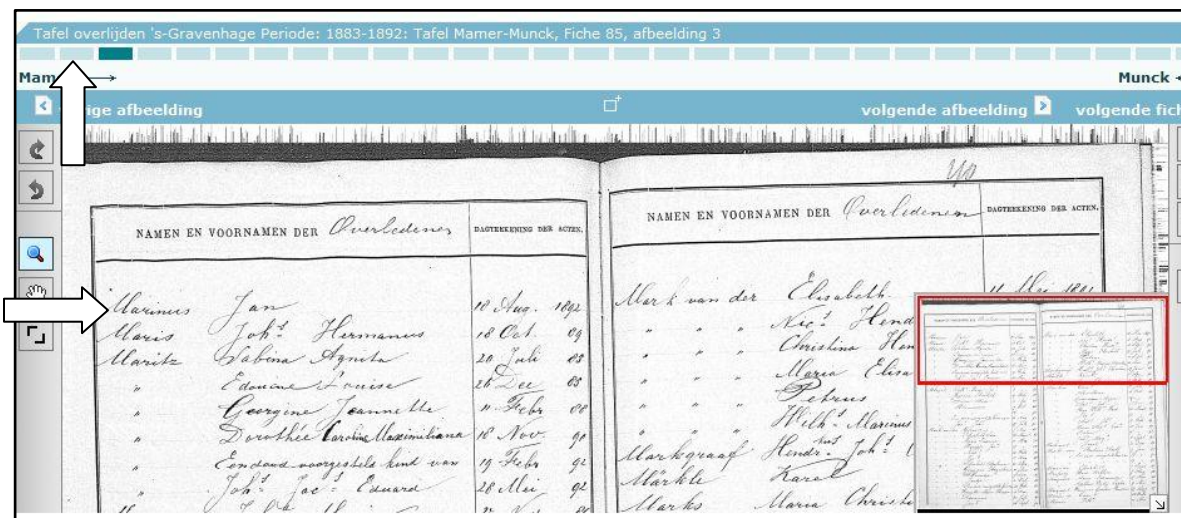 Tafel overlijden 's-Gravenhage Periode: 1883-1892: Tafel Mamer-Munck, Fiche 85, afbeelding 3
Mam
Munck
ige afbeelding
volgende afbeelding
volgende fich
NAMEN EN VOORNAMEN DER Overledenen
DAGTEEKENING DER ACTEN.
Marinus Jan 18 Aug. 1892
Maris Joh.s Hermanus 18 Oct. 89
Maritz Sabina Agnita 20 Juli 83
" Edouine Louise 26 Dec 85
" Georgine Jeannette 11 Febr 86
" Dorothée Caroline Maximiliana 18 Nov 90
" Een dood aangegeven kind van 19 Febr 92
" Joh.s Jac.s Eduard 28 Mei 92
NAMEN EN VOORNAMEN DER Overledenen
DAGTEEKENING DER ACTEN.
Mark van der Elisabeth 11 Mei 1891
" " " Nic.s Hend
" " " Christina Hen
" " " Maria Elisa
" " " Petrus
" " " Wilh.s Marinus
Markgraaf Hendr.kus Joh.s
Märkle Karel
Marks Maria Christi